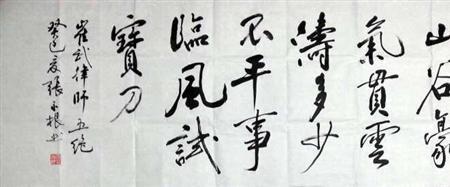 山谷豪
氣貫雲
濤多少
不平事
臨風試
寶刀
崔武律師五绝
癸巳夏張根书